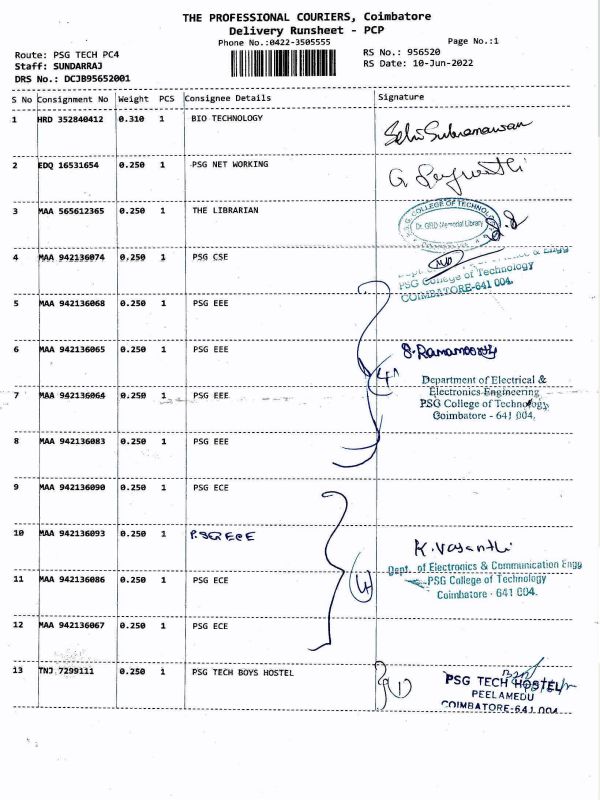 THE PROFESSIONAL COURIERS, Coimbatore
Delivery Runsheet - PCP
Phone No.:0422-3505555
Page No.:1
Route: PSG TECH PC4
Staff: SUNDARRAJ
DRS No.: DCJB95652001
RS No.: 956520
RS Date: 10-Jun-2022
S No Consignment No Weight PCS Consignee Details Signature
1 HRD 352840412 0.310 1 BIO TECHNOLOGY
2 EDQ 16531654 0.250 1 PSG NET WORKING
3 MAA 565612365 1 0.250 1 THE LIBRARIAN
P.S.G. COLLEGE OF TECHNOLOGY
Dr. GRD Memorial Library
4 MAA 942136074 0.250 1 PSG CSE
PSG College of Technology
COIMBATORE-641 004.
5 MAA 942136068 0.250 1 PSG EEE
6 MAA 942136065 0.250 1 PSG EEE
S. Ramamoorthy
4
Department of Electrical &
Electronics Engineering
7 MAA 942136064 0.250 1 PSG EEE
PSG College of Technology,
Coimbatore - 641 004.
8 MAA 942136083 0.250 1 PSG EEE
9 MAA 942136090 0.250 1 PSG ECE
10 MAA 942136093 0.250 1 P.SG ECE
K. Vasanthi
Dept. of Electronics & Communication Engg
11 MAA 942136086 0.250 1 PSG ECE
4
PSG College of Technology
Coimbatore - 641 004.
12 MAA 942136067 0.250 1 PSG ECE
13 TNJ 7299111 0.250 1 PSG TECH BOYS HOSTEL
1
PSG TECH HOSTEL
PEELAMEDU
COIMBATORE-641 004